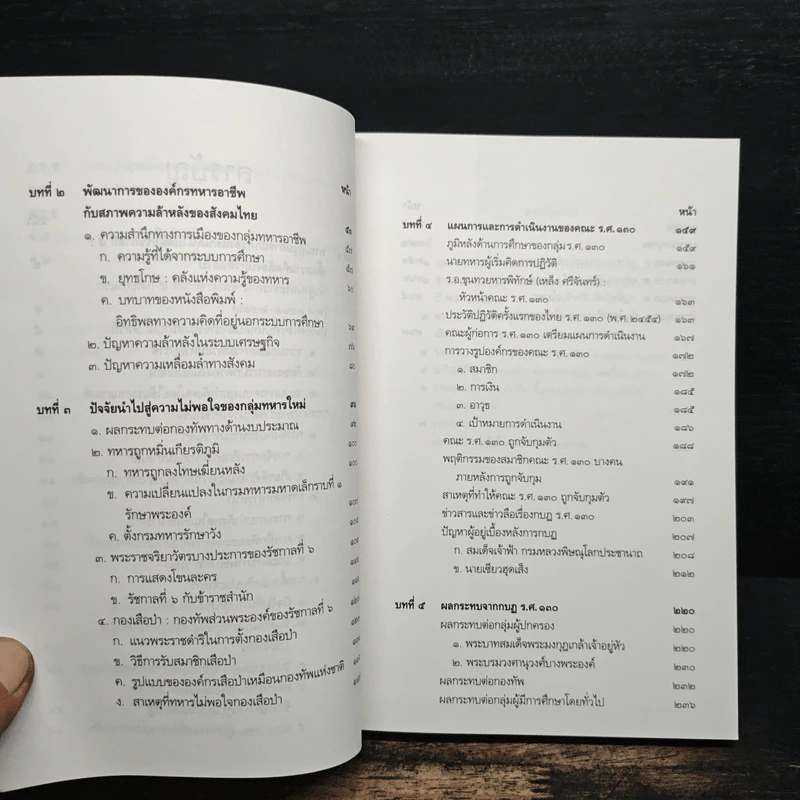 บทที่ ๒ พัฒนาการขององค์กรทหารอาชีพ หน้า
กับสภาพความล้าหลังของสังคมไทย
๑. ความสำนึกทางการเมืองของกลุ่มทหารอาชีพ
ก. ความรู้ที่ได้จากระบบการศึกษา
ข. ยุทธโกษ : คลังแห่งความรู้ของทหาร
ค. บทบาทของหนังสือพิมพ์ :
อิทธิพลทางความคิดที่อยู่นอกระบบการศึกษา
๒. ปัญหาความล้าหลังในระบบเศรษฐกิจ
๓. ปัญหาความเหลื่อมล้ำทางสังคม
บทที่ ๓ ปัจจัยนำไปสู่ความไม่พอใจของกลุ่มทหารใหม่
๑. ผลกระทบต่อกองทัพทางด้านงบประมาณ
๒. ทหารถูกหมิ่นเกียรติภูมิ ๑๐๐
ก. ทหารถูกลงโทษเฆี่ยนหลัง ๑๐๐
ข. ความเปลี่ยนแปลงในกรมทหารมหาดเล็กราบที่ ๑
รักษาพระองค์
ค. ตั้งกรมทหารรักษาวัง
๓. พระราชจริยาวัตรบางประการของรัชกาลที่ ๖
ก. การแสดงโขนละคร
ข. รัชกาลที่ ๖ กับข้าราชสำนัก
๔. กองเสือป่า : กองทัพส่วนพระองค์ของรัชกาลที่ ๖
ก. แนวพระราชดำริในการตั้งกองเสือป่า
ข. วิธีการรับสมาชิกเสือป่า
ค. รูปแบบขององค์กรเสือป่าเหมือนกองทัพแห่งชาติ
ง. สาเหตุที่ทหารไม่พอใจกองเสือป่า
หน้า
บทที่ ๔ แผนการและการดำเนินงานของคณะ ร.ศ.๑๓๐ ๑๕๙
ภูมิหลังด้านการศึกษาของกลุ่ม ร.ศ.๑๓๐ ๑๕๙
นายทหารผู้เริ่มคิดการปฏิวัติ ๑๖๑
ร.อ.ขุนทวยหารพิทักษ์ (เหล็ง ศรีจันทร์) :
หัวหน้าคณะ ร.ศ.๑๓๐ ๑๖๓
ประวัติปฏิวัติครั้งแรกของไทย ร.ศ.๑๓๐ (พ.ศ.๒๔๕๔) ๑๖๓
คณะผู้ก่อการ ร.ศ.๑๓๐ เตรียมแผนการดำเนินงาน ๑๖๗
การวางรูปองค์กรของคณะ ร.ศ.๑๓๐ ๑๗๒
๑. สมาชิก ๑๗๒
๒. การเงิน ๑๘๕
๓. อาวุธ ๑๘๕
๔. เป้าหมายการดำเนินงาน ๑๘๖
คณะ ร.ศ.๑๓๐ ถูกจับกุมตัว ๑๘๘
พฤติกรรมของสมาชิกคณะ ร.ศ.๑๓๐ บางคน
ภายหลังการถูกจับกุม ๑๙๑
สาเหตุที่ทำให้คณะ ร.ศ.๑๓๐ ถูกจับกุมตัว ๑๙๗
ข่าวสารและข่าวลือเรื่องกบฏ ร.ศ.๑๓๐ ๒๐๓
ปัญหาผู้อยู่เบื้องหลังการกบฏ ๒๐๘
ก. สมเด็จเจ้าฟ้า กรมหลวงพิษณุโลกประชานาถ ๒๐๘
ข. นายเซียวฮุดเส็ง ๒๑๒
บทที่ ๕ ผลกระทบจากกบฏ ร.ศ.๑๓๐ ๒๒๐
ผลกระทบต่อกลุ่มผู้ปกครอง ๒๒๐
๑. พระบาทสมเด็จพระมงกุฎเกล้าเจ้าอยู่หัว ๒๒๐
๒. พระบรมวงศานุวงศ์บางพระองค์ ๒๓๐
ผลกระทบต่อกองทัพ ๒๓๒
ผลกระทบต่อกลุ่มผู้มีการศึกษาโดยทั่วไป ๒๓๖